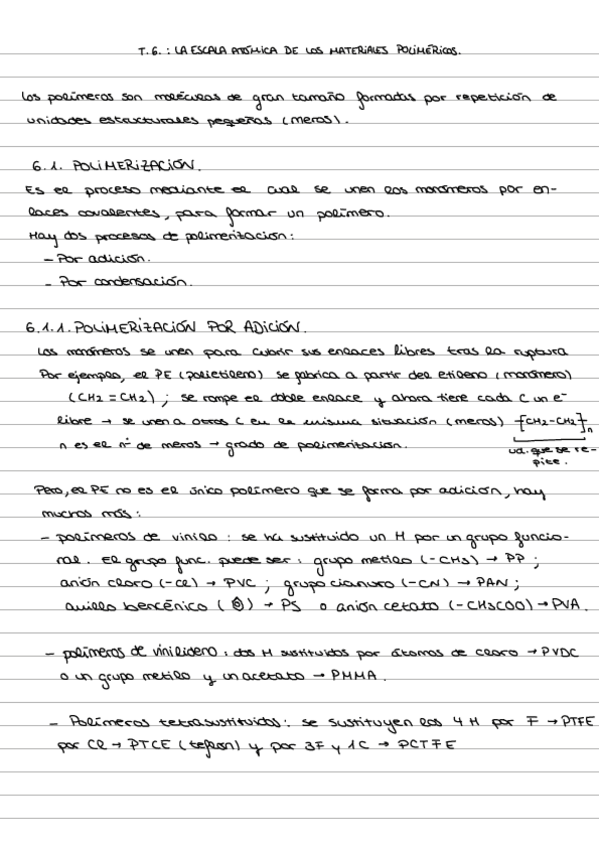 T.6.: LA ESCALA ATÓMICA DE LOS MATERIALES POLIMÉRICOS.
Los polímeros son moléculas de gran tamaño formadas por repetición de
unidades estructurales pequeñas (meros).
6.1. POLIMERIZACIÓN.
Es el proceso mediante el cual se unen los monómeros por en-
laces covalentes, para formar un polímero.
Hay dos procesos de polimerización:
- Por adición.
- Por condensación.
6.1.1. POLIMERIZACIÓN POR ADICIÓN.
Los monómeros se unen para cubrir sus enlaces libres tras la ruptura
Por ejemplo, el PE (polietileno) se fabrica a partir del etileno (monómero)
(CH2=CH2); se rompe el doble enlace y ahora tiene cada C un e-
libre → se unen a otros C en la misma situación (meros) -[CH2-CH2]-n
n es el nº de meros → grado de polimerización.
ud. que se re-
pite.
Pero, el PE no es el único polímero que se forma por adición, hay
muchos más:
- polímeros de vinilo: se ha sustituido un H por un grupo funcio-
nal. El grupo func. puede ser: grupo metilo (-CH3) → PP;
anión cloro (-Cl) → PVC; grupo cianuro (-CN) → PAN;
anillo bencénico ( ) → PS o anión cetato (-CH3COO) → PVA.
- polímeros de vinilideno: dos H sustituidos por átomos de cloro → PVDC
o un grupo metilo y un acetato → PMMA.
- Polímeros tetrasustituidos: se sustituyen los 4 H por F → PTFE
por Cl → PTCE (teflon) y por 3F y 1C → PCTFE